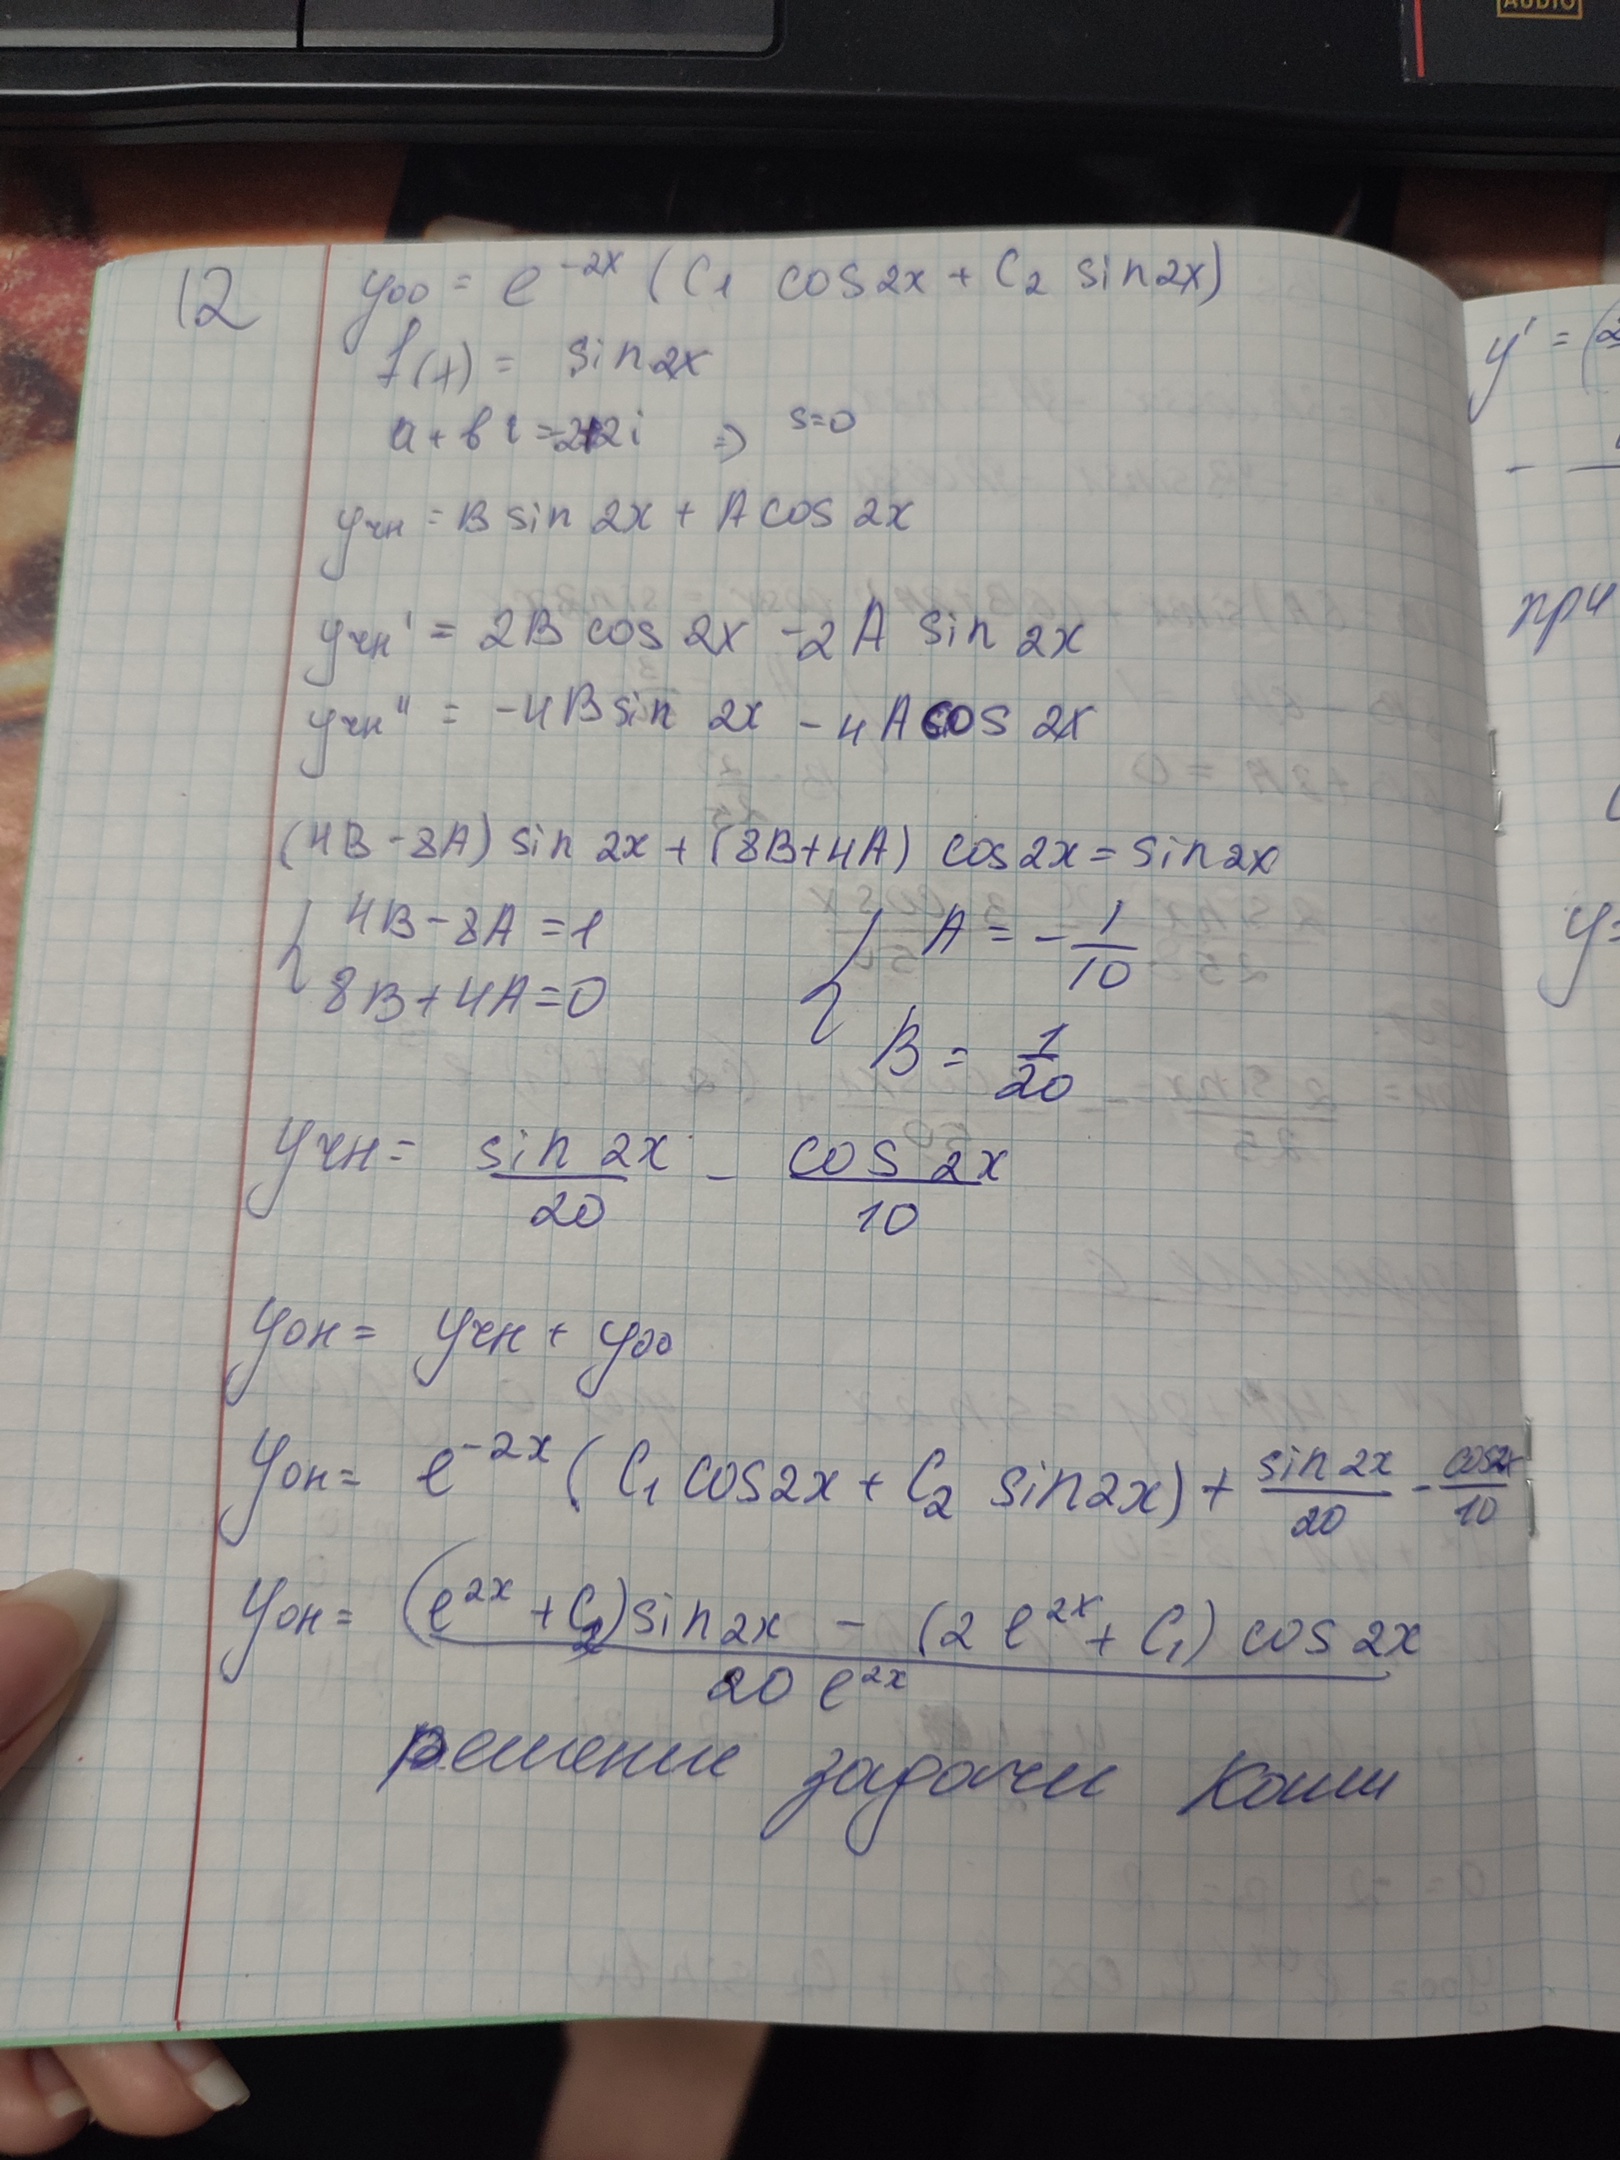 AUDIO
12
yоо = e^{-2x} (C₁ cos2x + C₂ sin2x)
f(x) = sin2x
a + bi = 2i ⇒ s=0
yчн = B sin 2x + A cos 2x
yчн' = 2B cos 2x - 2A sin 2x
yчн'' = -4B sin 2x - 4A cos 2x
(4B - 8A) sin 2x + (8B+4A) cos2x = sin2x
{ 4B - 8A = 1
8B + 4A = 0
{ A = - 1/10
B = 1/20
yчн = sin 2x / 20 - cos 2x / 10
yон = yчн + yоо
yон = e^{-2x} (C₁ cos2x + C₂ sin2x) + sin2x / 20 - cos2x / 10
yон = ((e^{2x} + C₂) sin2x - (2e^{2x} + C₁) cos 2x) / 20 e^{2x}
решение задачи Коши
y' =
при
y =